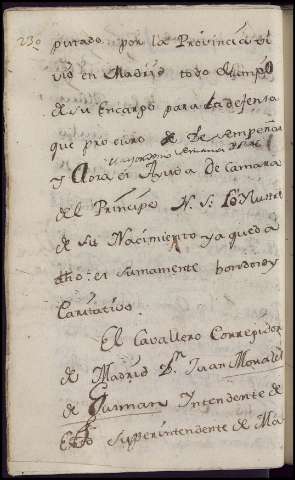 230
putado por la Provincia vi
vio en Madrid todo el tiempo
de su Encargo para la defensa
que procuro desempeñar
y Aora es Ayuda De Camara
del Principe N. S.
de su Nacimiento ya queda
dho: es sumamente honrado y
Caritativo.
El Cavallero Corregidor
de Madrid Dn. Juan Morales
de Guzman Intendente de
Superintendente de Ma-